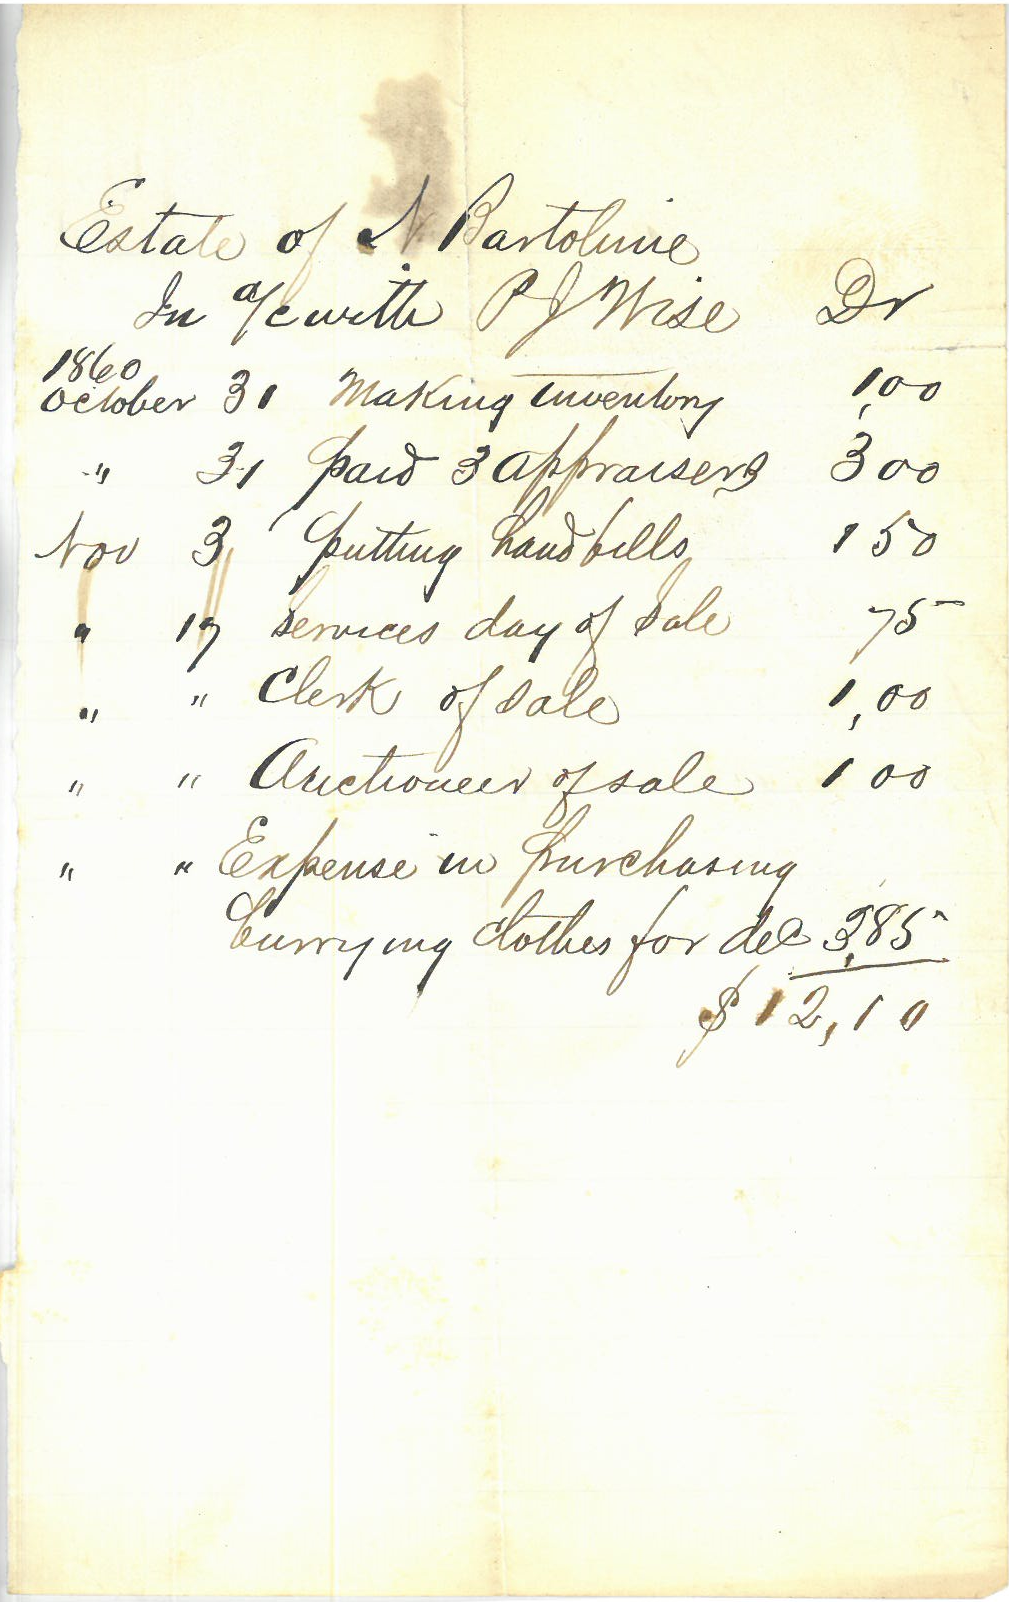 Estate of N Bartolinie
In a/c with P J Wise Dr
1860
October 31 Making inventory 1,00
" 31 paid 3 appraisers 3 00
Nov 3 putting hand bills 1 50
" 17 services day of Sale 75
" " Clerk of Sale 1,00
" " Auctioneer of sale 1 00
" " Expense in purchasing
burrying clothes for dec 3,85
$ 12,10